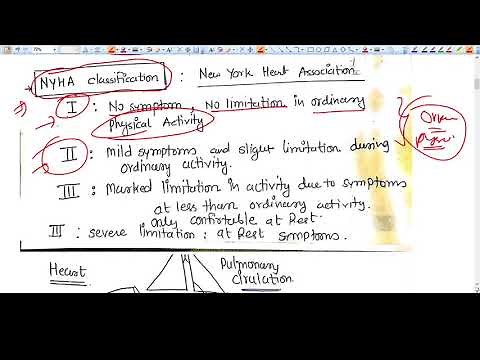 NYHA classification : New York Heart Association
I : No symptom, No limitation in ordinary
Physical Activity
II : Mild symptoms and slight limitation during
ordinary activity.
III : Marked limitation in activity due to symptoms
at less than ordinary activity.
only comfortable at Rest.
III : severe limitation : at Rest symptoms.
Heart
Pulmonary
circulation